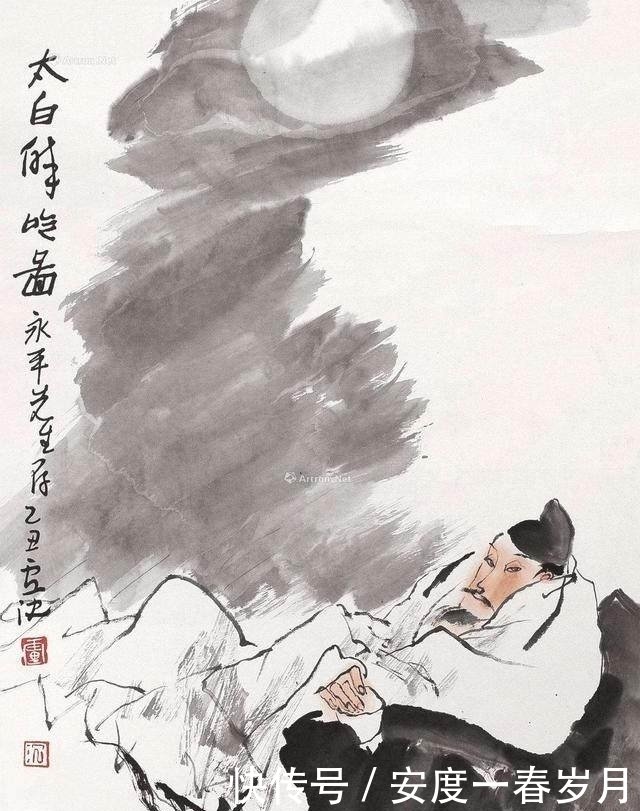 太白醉吟圖 永平先生存 乙丑 卢沉
盧
沉
Artron.Net
Artron.Net
快传号 / 安度一春岁月